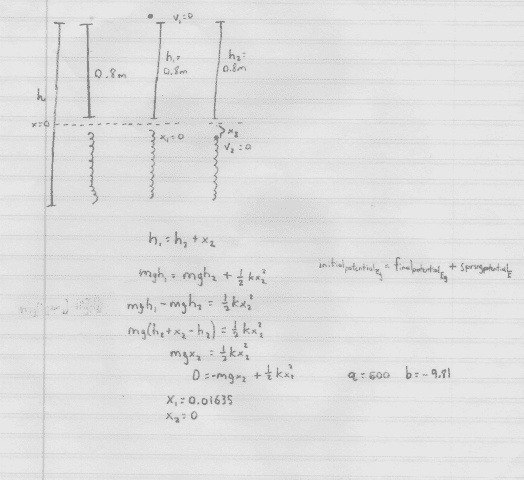 V₁=0
h₁= 0.8m
h₂= 0.8m
0.8m
h
x=0
x₁=0
x₂
V₂=0
h₁ = h₂ + x₂
mgh₁ = mgh₂ + ½ kx₂²
initial potential Eg = final potential Eg + spring potential E
mgh₁ - mgh₂ = ½ kx₂²
mg(h₂ + x₂ - h₂) = ½ kx₂²
mgx₂ = ½ kx₂²
0 = -mgx₂ + ½ kx₂²
a = 600 b = -9.81
X₁ = 0.01635
X₂ = 0